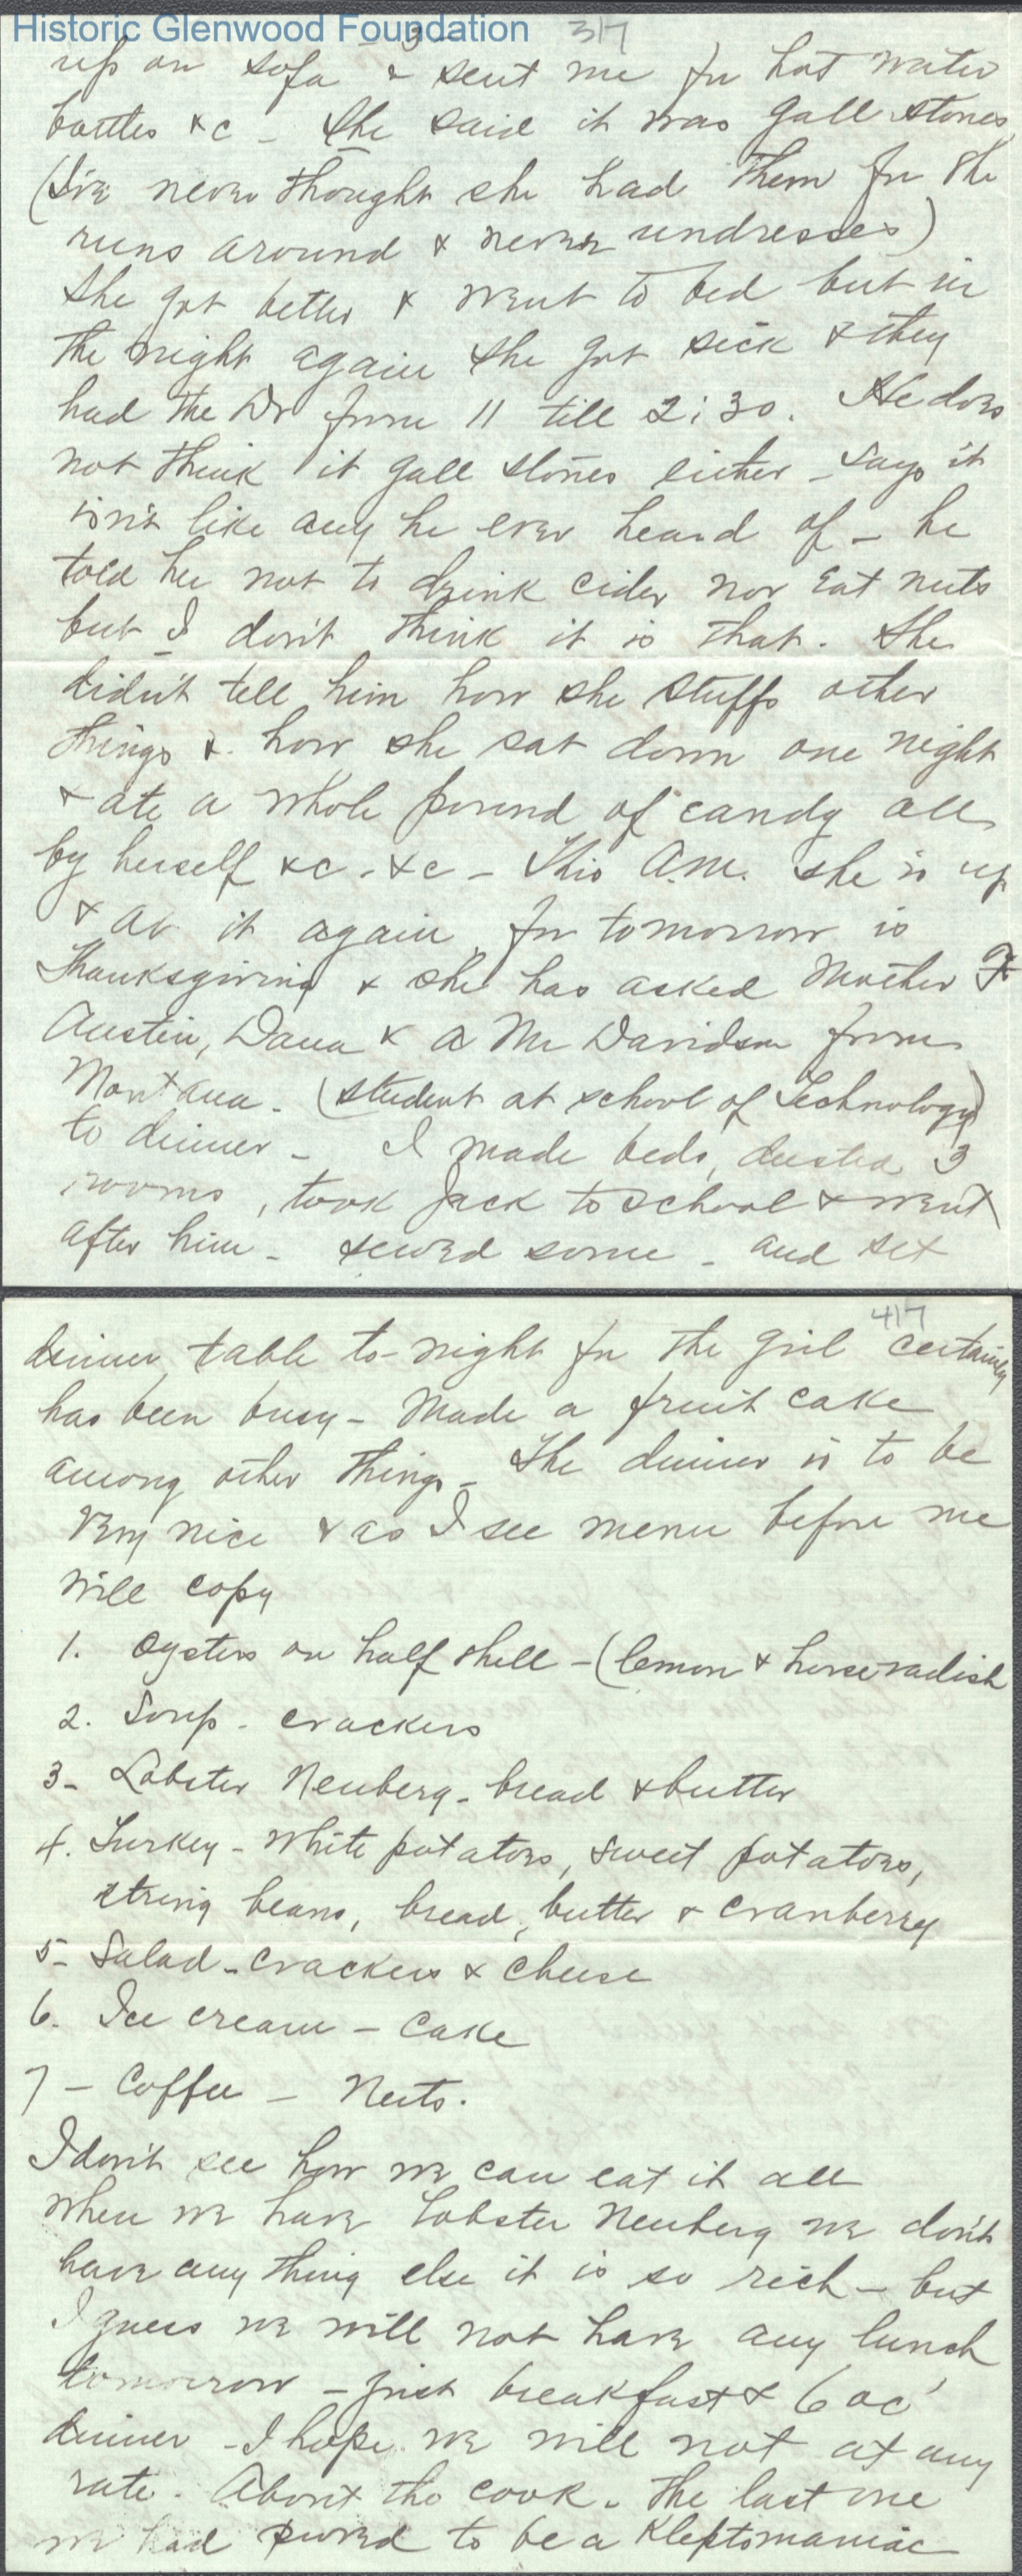 Historic Glenwood Foundation
3 317
up on sofa & sent me for hot water
bottles &c - She said it was gall stones
(I've never thought she had them for she
runs around & never undresses)
She got better & went to bed but in
the night again she got sick & they
had the Dr from 11 till 2:30. He does
not think it gall stones either - Says it
isn't like any he ever heard of - he
told her not to drink cider nor eat nuts
but I don't think it is that. She
didn't tell him how she stuffs other
things & how she sat down one night
& ate a whole pound of candy all
by herself &c. &c - This A.M. she is up
& at it again for tomorrow is
Thanksgiving & she has asked Mother F
Austin, Dana & a Mr Davidson from
Montana - (student at school of Technology)
to dinner - I made beds, dusted 3
rooms, took Jack to school & went
after him - sewed some - and set
417
dinner table to-night for the girl certainly
has been busy - Made a fruit cake
among other things - The dinner is to be
very nice & as I see menu before me
will copy
1. Oysters on half shell - (lemon & horseradish
2. Soup - crackers
3 - Lobster Neuberg - bread & butter
4. Turkey - white potatoes, sweet potatoes,
string beans, bread, butter & cranberry
5 - Salad - crackers & cheese
6. Ice cream - cake
7 - Coffee - Nuts.
I don't see how we can eat it all
when we have Lobster Neuberg we don't
have any thing else it is so rich - but
I guess we will not have any lunch
tomorrow - just breakfast & 6 oc'
dinner - I hope we will not at any
rate. About the cook. The last one
we had proved to be a Kleptomaniac